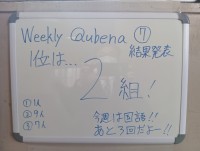 Weekly Qubena ⑦
結果発表
1位は…
2組!
① 1人
② 9人
③ 7人
今週は国語!!
あと3回だよー!!